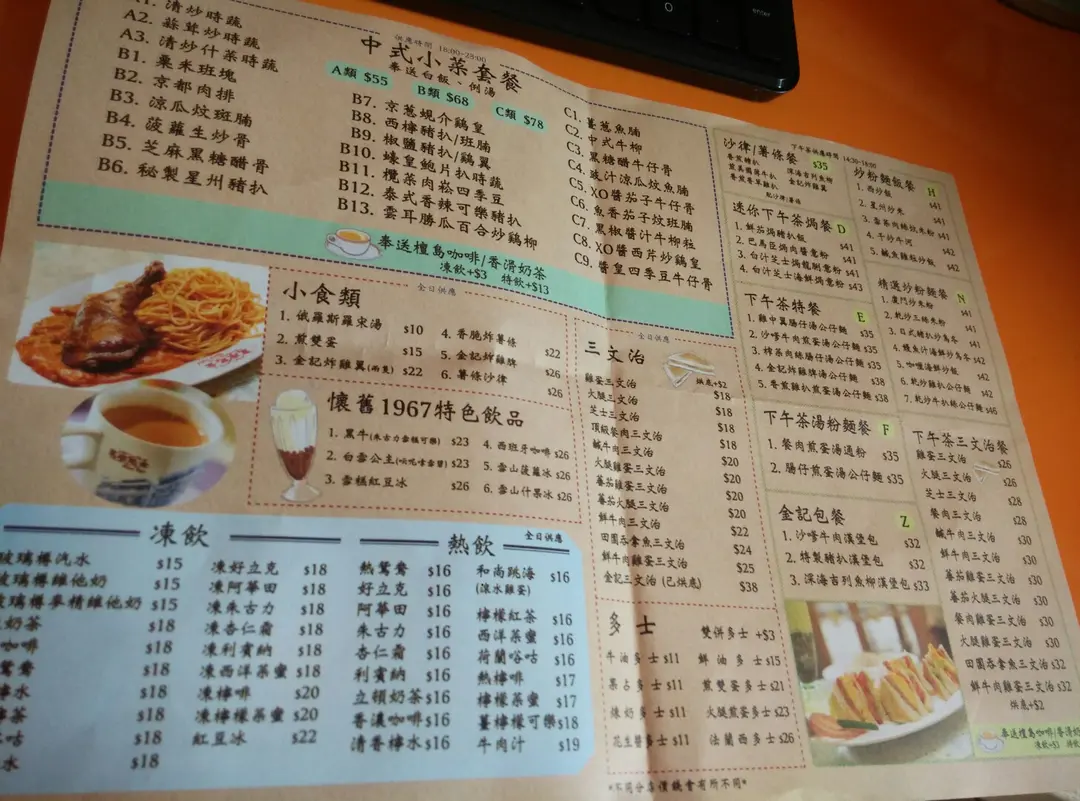 enter
A1. 清炒時蔬
A2. 蒜茸炒時蔬
A3. 清炒什菜時蔬
B1. 粟米班塊
B2. 京都肉排
B3. 涼瓜炆斑腩
B4. 菠蘿生炒骨
B5. 芝麻黑糖醋骨
B6. 秘製星州豬扒
供應時間 18:00-23:00
中式小菜套餐
奉送白飯、例湯
A類 $55 B類 $68 C類 $78
B7. 京葱蜆介鷄皇
B8. 西檸豬扒/班腩
B9. 椒鹽豬扒/鷄翼
B10. 蠔皇鮑片扒時蔬
B11. 欖菜肉崧四季豆
B12. 泰式香辣可樂豬扒
B13. 雲耳勝瓜百合炒鷄柳
C1. 薑葱魚腩
C2. 中式牛柳
C3. 黑糖醋牛仔骨
C4. 豉汁涼瓜炆魚腩
C5. XO醬茄子牛仔骨
C6. 魚香茄子炆班腩
C7. 黑椒醬汁牛柳粒
C8. XO醬西芹炒鷄皇
C9. 醬皇四季豆牛仔骨
奉送檀島咖啡/香滑奶茶
凍飲+$3 特飲+$13
小食類
全日供應
1. 俄羅斯羅宋湯 $10
2. 煎雙蛋 $15
3. 金記炸雞翼(兩隻) $22
4. 香脆炸薯條 $22
5. 金記炸雞髀 $26
6. 薯條沙律 $26
懷舊1967特色飲品
1. 黑牛(朱古力雪糕可樂) $23
2. 白雪公主(忌廉雪糕) $23
3. 雪糕紅豆冰 $26
4. 西班牙咖啡 $26
5. 雪山菠蘿冰 $26
6. 雪山什果冰 $26
三文治
全日供應
烘底+$2
雞蛋三文治 $18
火腿三文治 $18
芝士三文治 $18
頂級餐肉三文治 $18
鹹牛肉三文治 $20
火腿雞蛋三文治 $20
蕃茄雞蛋三文治 $20
蕃茄火腿三文治 $20
鮮牛肉三文治 $22
田園吞拿魚三文治 $24
鮮牛肉雞蛋三文治 $25
金記三文治(已烘底) $38
多士
雙併多士 +$3
牛油多士 $11
果占多士 $11
煉奶多士 $11
花生醬多士 $11
鮮油多士 $15
煎雙蛋多士 $21
火腿煎蛋多士 $23
法蘭西多士 $26
*不同分店價錢會有所不同*
凍飲
玻璃樽汽水 $15
玻璃樽維他奶 $15
玻璃樽麥精維他奶 $15
奶茶 $18
咖啡 $18
鴛鴦 $18
檸水 $18
檸茶 $18
咕 $18
水 $18
凍好立克 $18
凍阿華田 $18
凍朱古力 $18
凍杏仁霜 $18
凍利賓納 $18
凍西洋菜蜜 $18
凍檸啡 $20
凍檸檬菜蜜 $20
紅豆冰 $22
熱飲
全日供應
熱鴛鴦 $16
好立克 $16
阿華田 $16
朱古力 $16
杏仁霜 $16
利賓納 $16
立頓奶茶 $16
香濃咖啡 $16
清香檸水 $16
和尚跳海 $16
(滾水雞蛋)
檸檬紅茶 $16
西洋菜蜜 $16
荷蘭唂咕 $16
熱檸啡 $17
檸檬菜蜜 $17
薑檸檬可樂 $18
牛肉汁 $19
下午茶供應時間 14:30-18:00
沙律/薯條餐 $35
香煎豬扒
深海吉列魚柳
金記炸雞翼
配沙律/薯條
迷你下午茶焗餐 D
1. 鮮茄焗豬扒飯 $41
2. 巴馬臣焗肉醬意粉 $41
3. 白汁芝士焗龍脷意粉 $41
4. 白汁芝士海鮮焗意粉 $43
下午茶特餐 E
1. 雞中翼腸仔湯公仔麵 $35
2. 沙嗲牛肉煎蛋湯公仔麵 $35
3. 榨菜肉絲腸仔湯公仔麵 $35
4. 金記雞髀湯公仔麵 $38
5. 香煎雞扒煎蛋湯公仔麵 $38
下午茶湯粉麵餐 F
1. 餐肉煎蛋湯通粉 $35
2. 腸仔煎蛋湯公仔麵 $35
金記包餐 Z
1. 沙嗲牛肉漢堡包 $32
2. 特製豬扒漢堡包 $32
3. 深海吉列魚柳漢堡包 $33
炒粉麵飯餐 H
1. 西炒飯 $41
2. 星州炒米 $41
3. 雪菜肉絲炆米粉 $41
4. 干炒牛河 $42
5. 鹹魚雞粒炒飯 $42
精選炒粉麵餐 N
1. 廈門炒米 $41
2. 乾炒三絲米粉 $41
3. 日式豬扒炒烏冬 $41
4. 鰻魚汁海鮮炒烏冬 $42
5. 咖喱海鮮炒飯 $42
6. 乾炒雞扒公仔麵 $42
7. 乾炒牛扒絲公仔麵 $46
下午茶三文治餐
雞蛋三文治 $26
火腿三文治 $26
芝士三文治 $28
餐肉三文治 $28
鹹牛肉三文治 $30
火腿雞蛋三文治 $30
蕃茄雞蛋三文治 $30
蕃茄火腿三文治 $30
餐肉雞蛋三文治 $30
火腿雞蛋三文治 $30
田園吞拿魚三文治 $32
鮮牛肉雞蛋三文治 $32
烘底+$2
奉送檀島咖啡/香滑奶茶
凍飲+$3 特飲